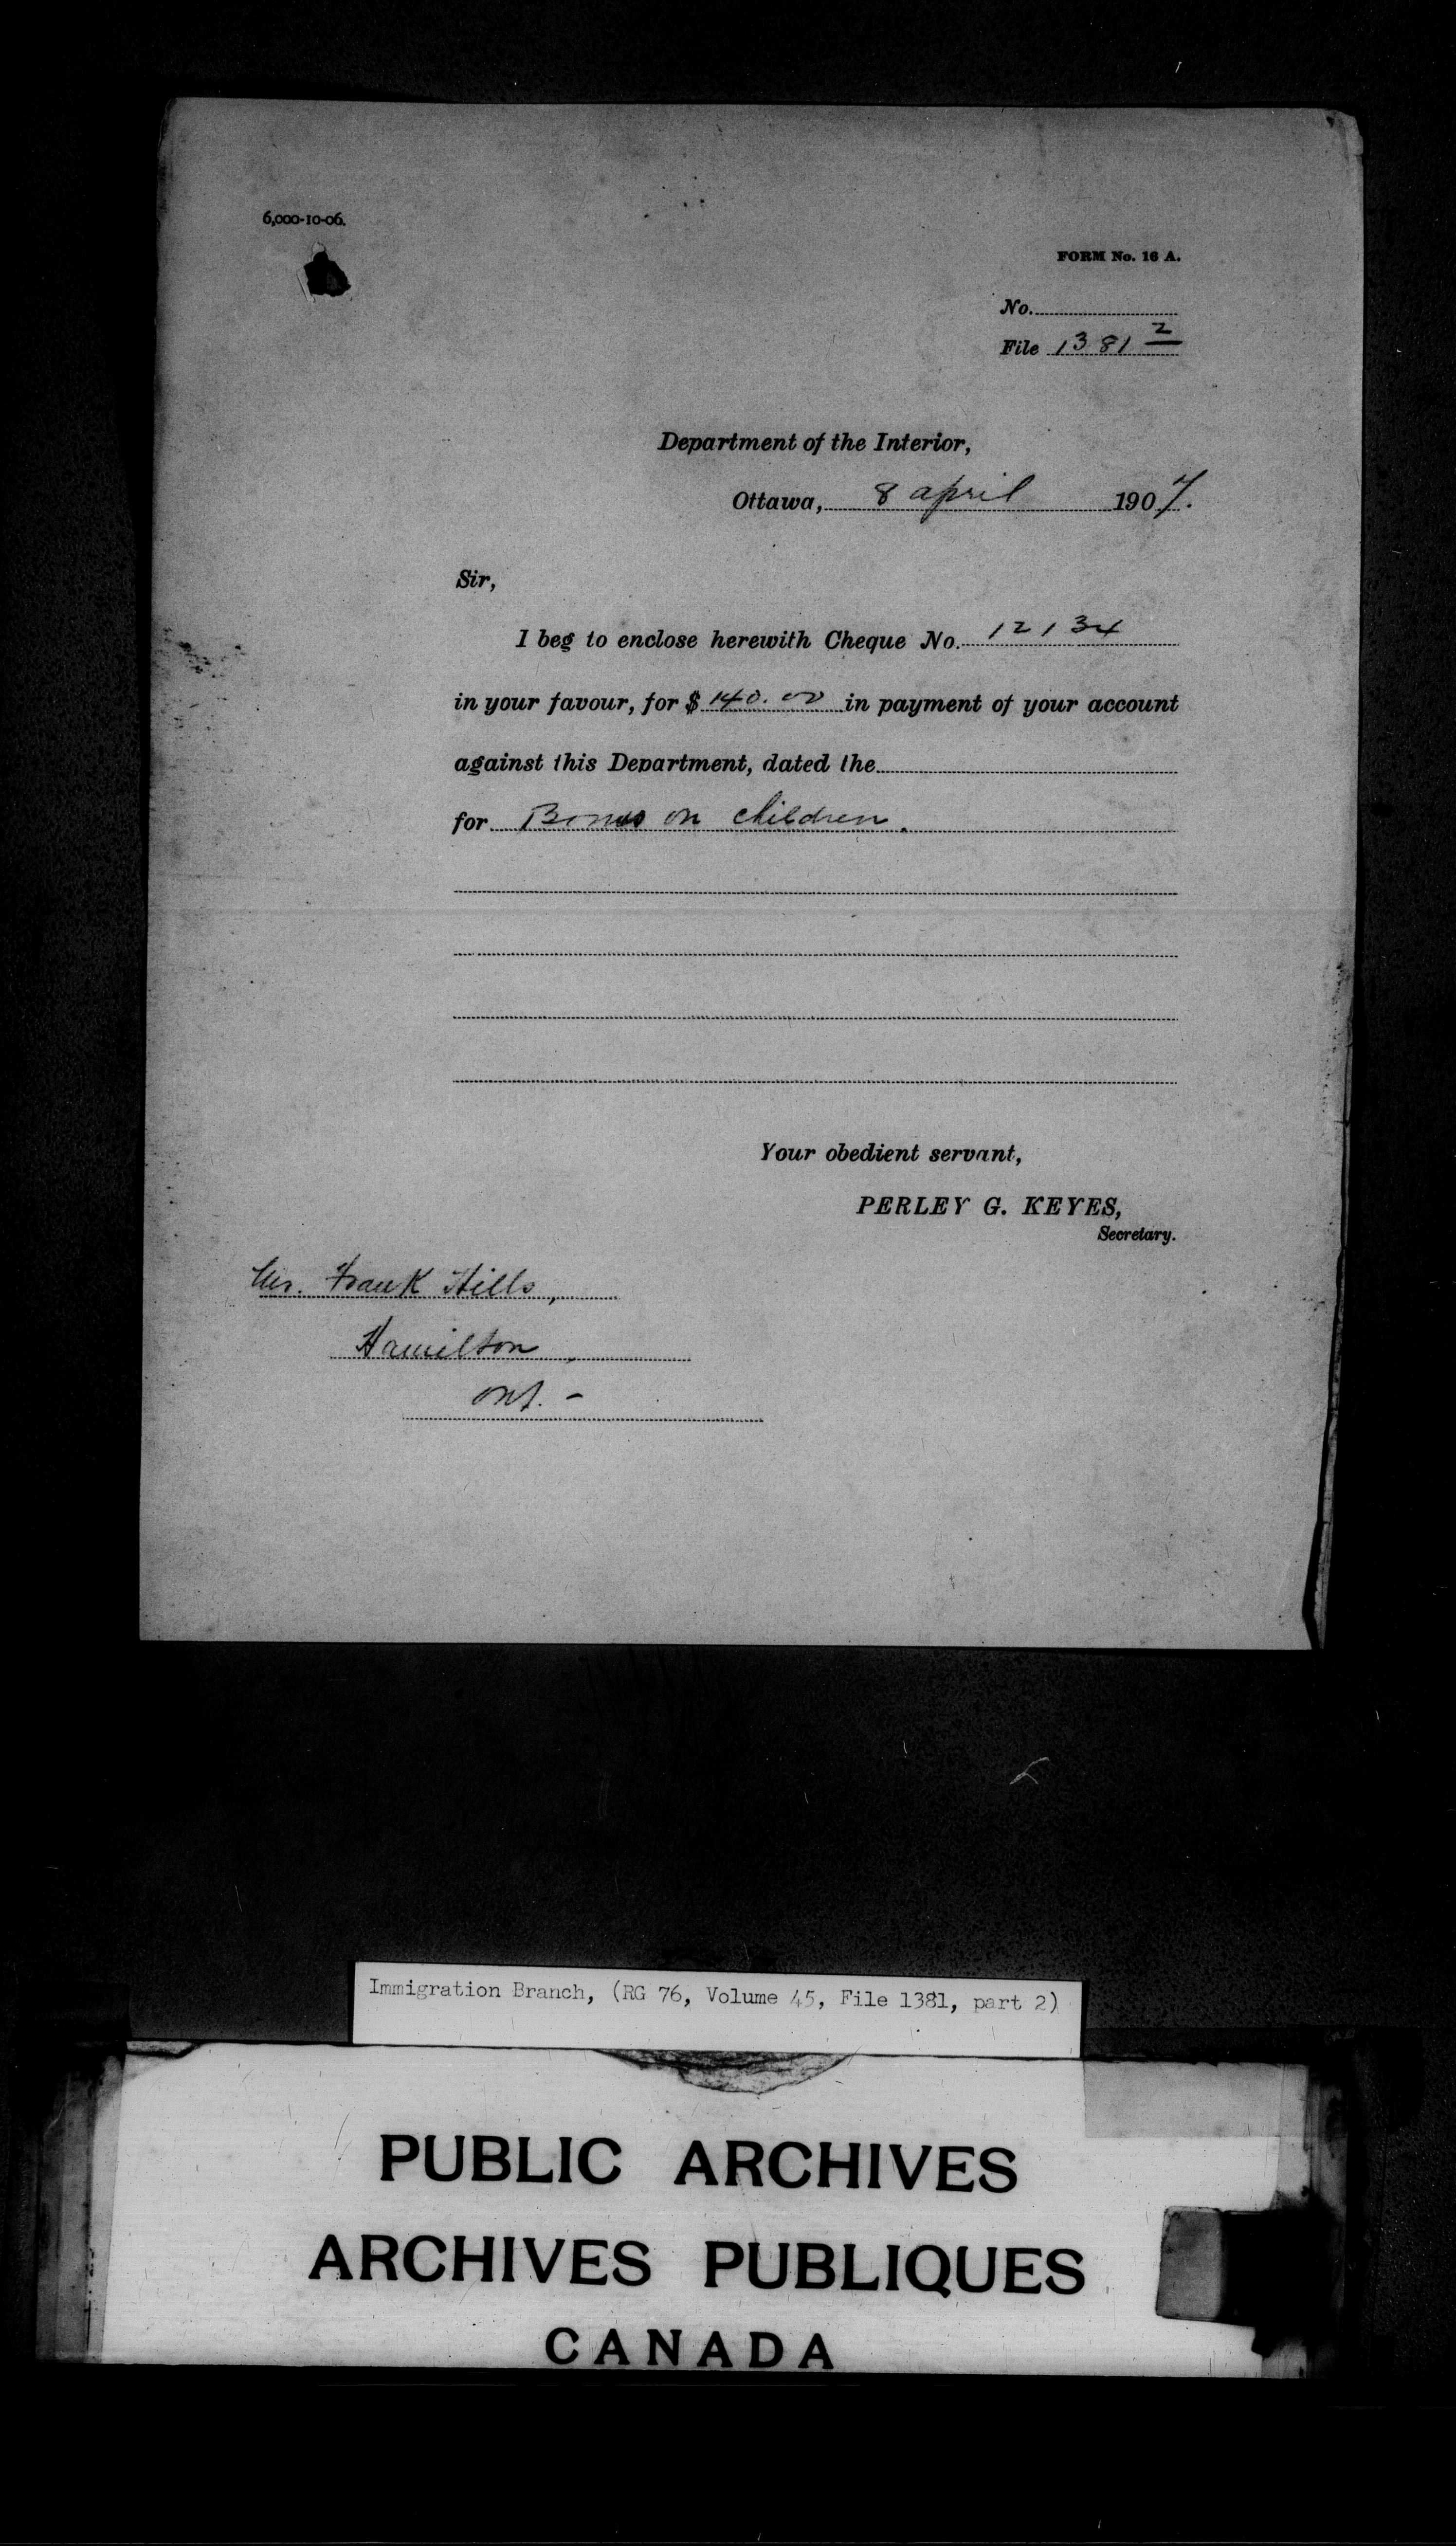 6,000-10-06.
FORM No. 16 A.
No.
File 1381 2
Department of the Interior,
Ottawa, 8 april 1907.
Sir,
I beg to enclose herewith Cheque No. 12134
in your favour, for $ 140.00 in payment of your account
against this Department, dated the
for Bonus on children.
Your obedient servant,
PERLEY G. KEYES,
Secretary.
Mr. Frank Hills,
Hamilton,
Ont. -
Immigration Branch, (RG 76, Volume 45, File 1381, part 2)
PUBLIC ARCHIVES
ARCHIVES PUBLIQUES
CANADA